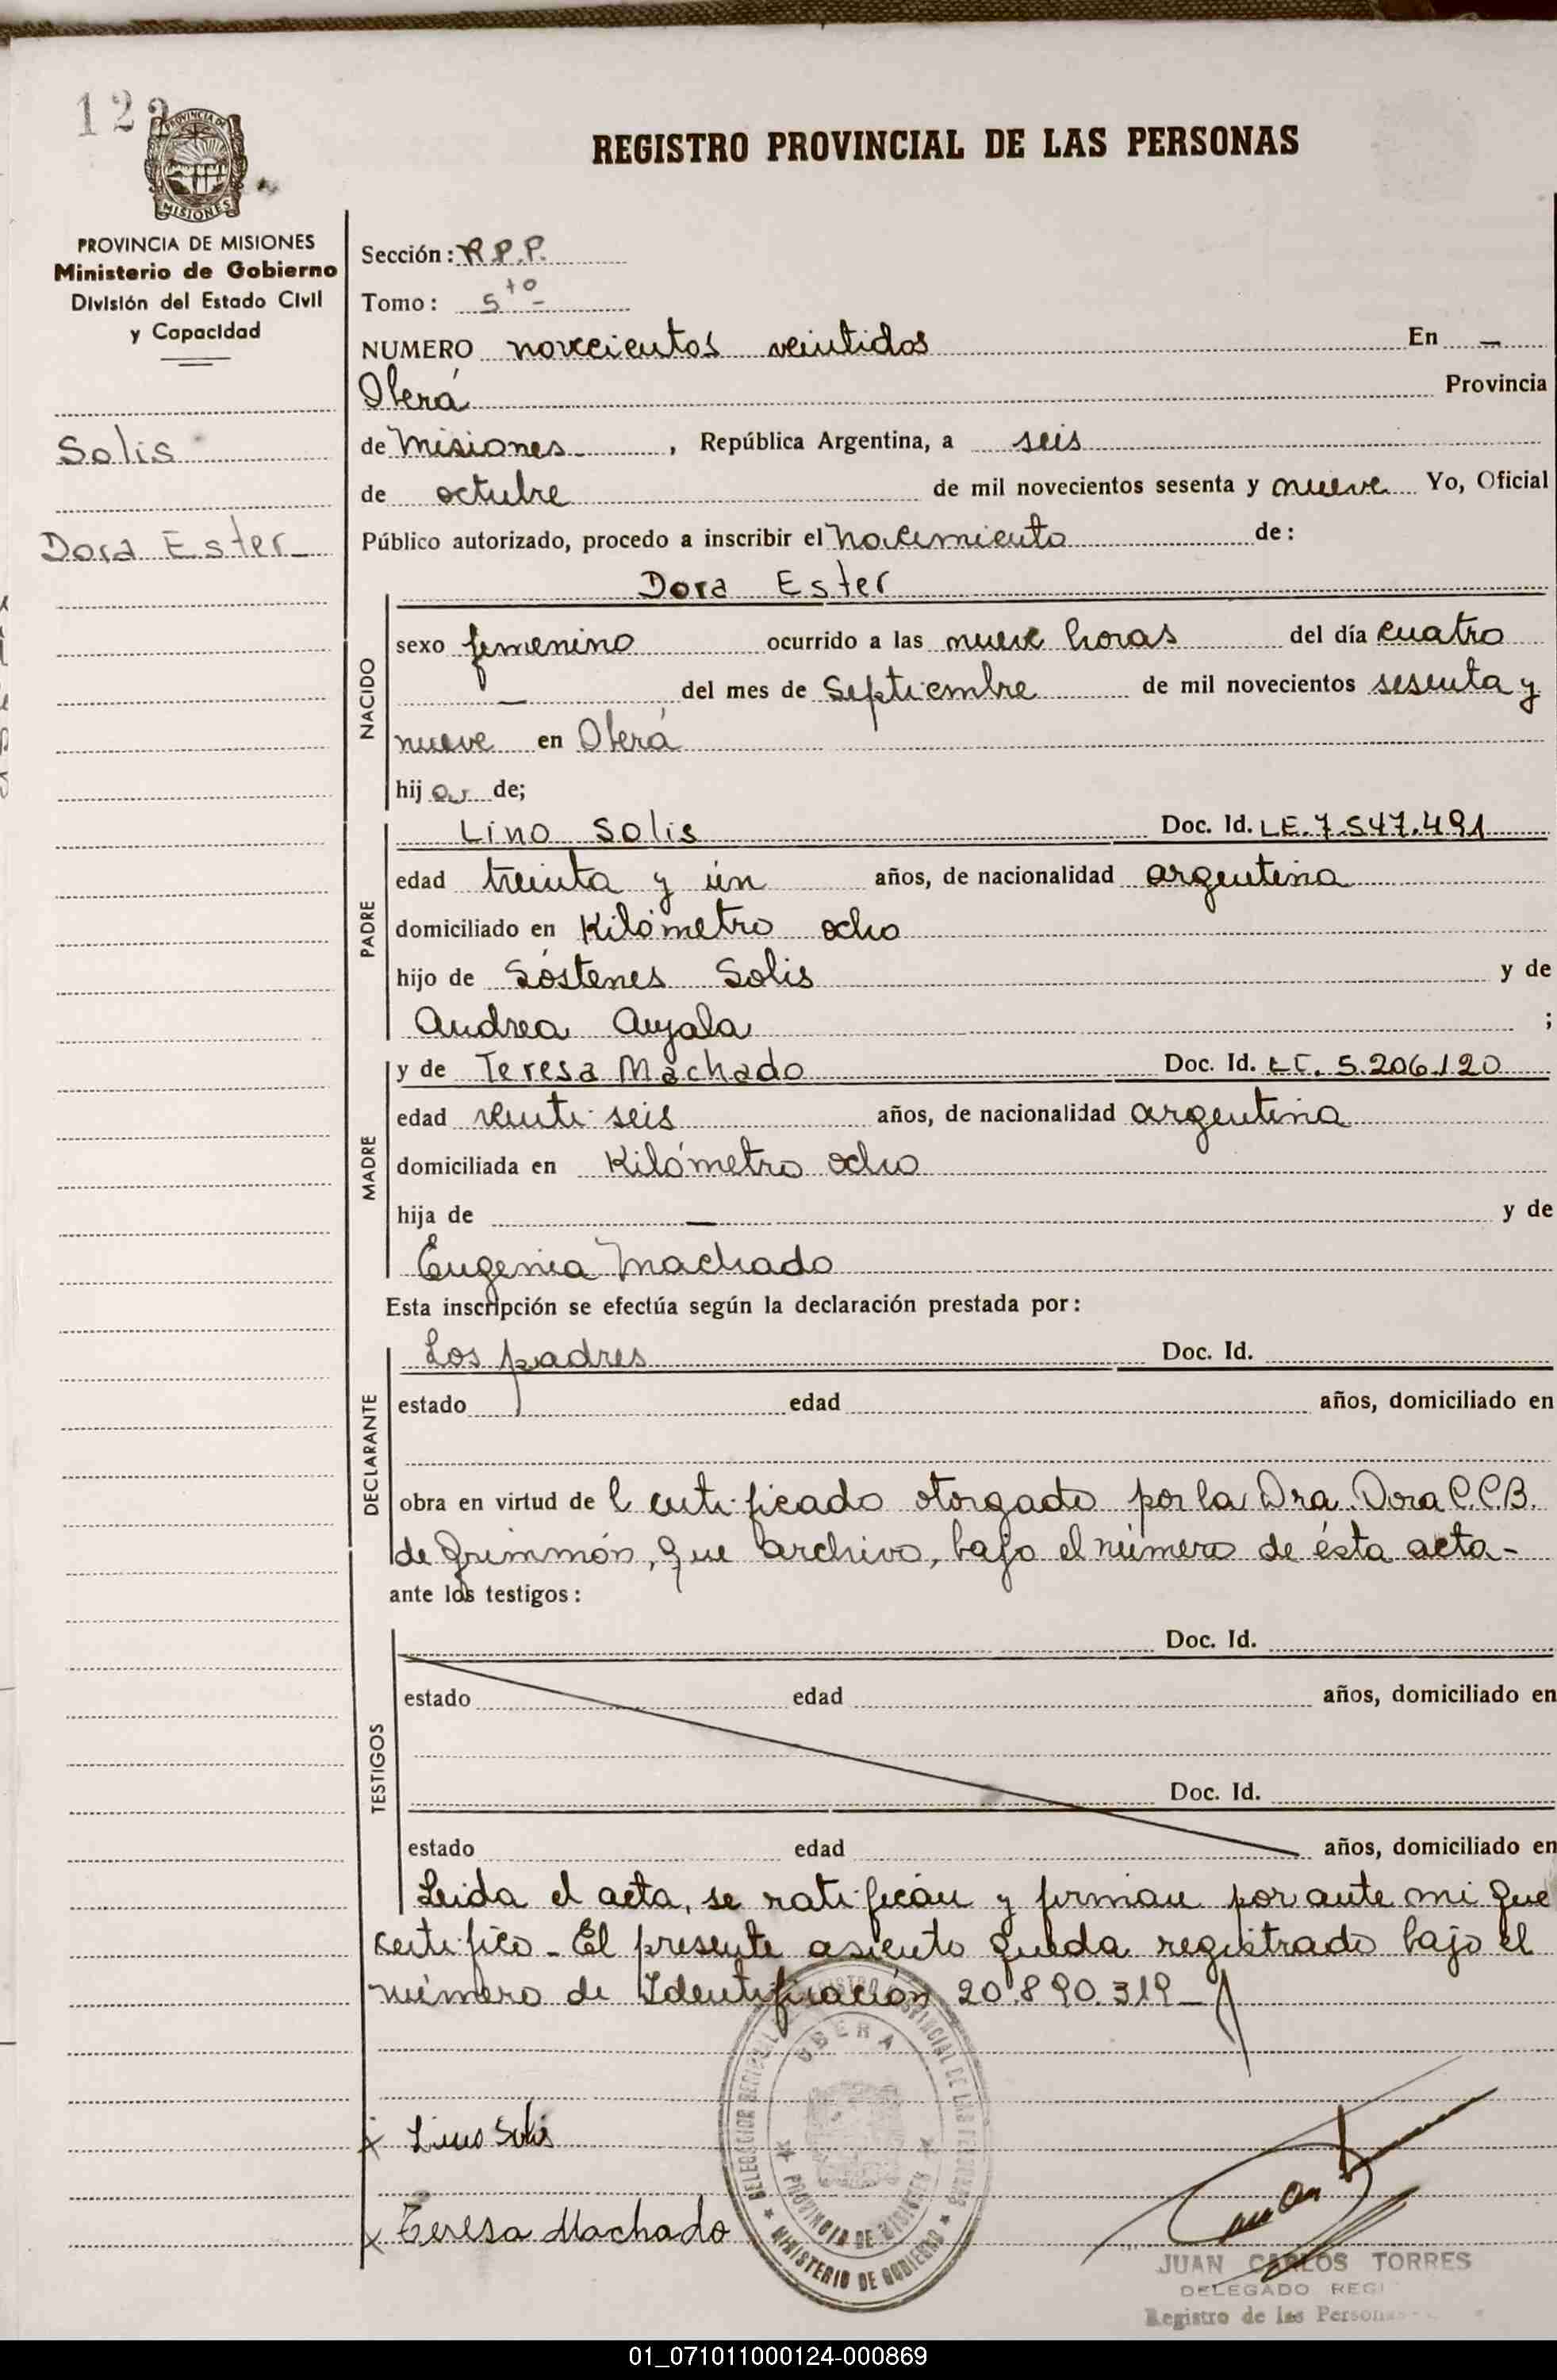 122
PROVINCIA DE
MISIONES
REGISTRO PROVINCIAL DE LAS PERSONAS
PROVINCIA DE MISIONES
Ministerio de Gobierno
División del Estado Civil
y Capacidad
Solis
Dora Ester
Sección: R.P.P.
Tomo: 5to
NUMERO novecientos veintidos En —
Oberá Provincia
de Misiones, República Argentina, a seis
de octubre de mil novecientos sesenta y nueve Yo, Oficial
Público autorizado, procedo a inscribir el nacimiento de:
Dora Ester
NACIDO
sexo femenino ocurrido a las nueve horas del día cuatro
— del mes de Septiembre de mil novecientos sesenta y
nueve en Oberá
hija de;
PADRE
Lino Solis Doc. Id. LE. 7.547.491
edad treinta y ún años, de nacionalidad argentina
domiciliado en Kilómetro ocho
hijo de Sóstenes Solis y de
Andrea Ayala ;
MADRE
y de Teresa Machado Doc. Id. LC. 5.206.120
edad veinti seis años, de nacionalidad argentina
domiciliada en Kilómetro ocho
hija de — y de
Eugenia Machado
Esta inscripción se efectúa según la declaración prestada por:
DECLARANTE
Los padres Doc. Id.
estado edad años, domiciliado en
obra en virtud de l certificado otorgado por la Dra. Dora C.C.B.
de Grimmón, que archivo, bajo el número de ésta acta-
ante los testigos:
TESTIGOS
Doc. Id.
estado edad años, domiciliado en
Doc. Id.
estado edad años, domiciliado en
Leida el acta, se ratifican y firman por ante mi que
certifico - El presente asiento queda registrado bajo el
número de Identificación 20.890.319-
OBERA
PROVINCIA DE MISIONES
MINISTERIO DE GOBIERNO
x Lino Solis
x Teresa Machado
JUAN CARLOS TORRES
DELEGADO REGI
Registro de las Personas
01_071011000124-000869